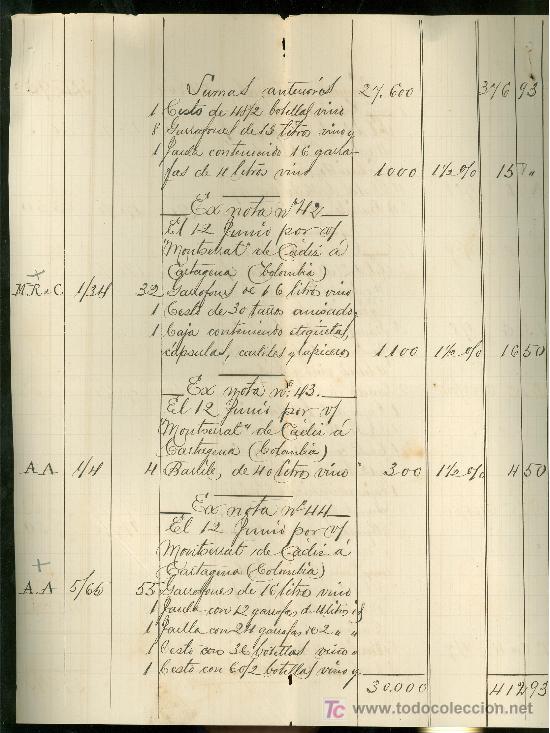 Sumas anteriores 27.600 376 93
1 Cesto de 48/2 botellas vino
8 Garrafones de 13 litros vino y
1 Jaula conteniendo 16 garra-
fas de 4 litros vino 1000 1½ % 15 "
Ex nota nº 42
El 12 Junio por v/
"Montserrat" de Cadiz á
Cartagena (Colombia)
M.R.&C. 1/34 32 Garrafones de 16 litros vino
1 Cesto de 30 anisado,
1 Caja conteniendo etiquetas,
capsulas, carteles y lapiceros 1.100 1½ % 16 50
Ex nota nº 43.
El 12 Junio por v/
"Montserrat" de Cadiz á
Cartagena (Colombia)
A.A. 1/4 4 Barriles, de 40 litros vino 300 1½ % 4 50
Ex nota nº 44
El 12 Junio por v/
Montserrat de Cadiz á
Cartagena (Colombia)
A.A 5/66 55 Garrafones de 16 litros vino
1 Jaula con 12 garrafas de 4 litros
1 Jaula con 24 garrafas de 2 " "
1 Cesto con 36 botellas vino
1 Cesto con 60/2 botellas vino y
30.000 412 93
TC todocoleccion.net